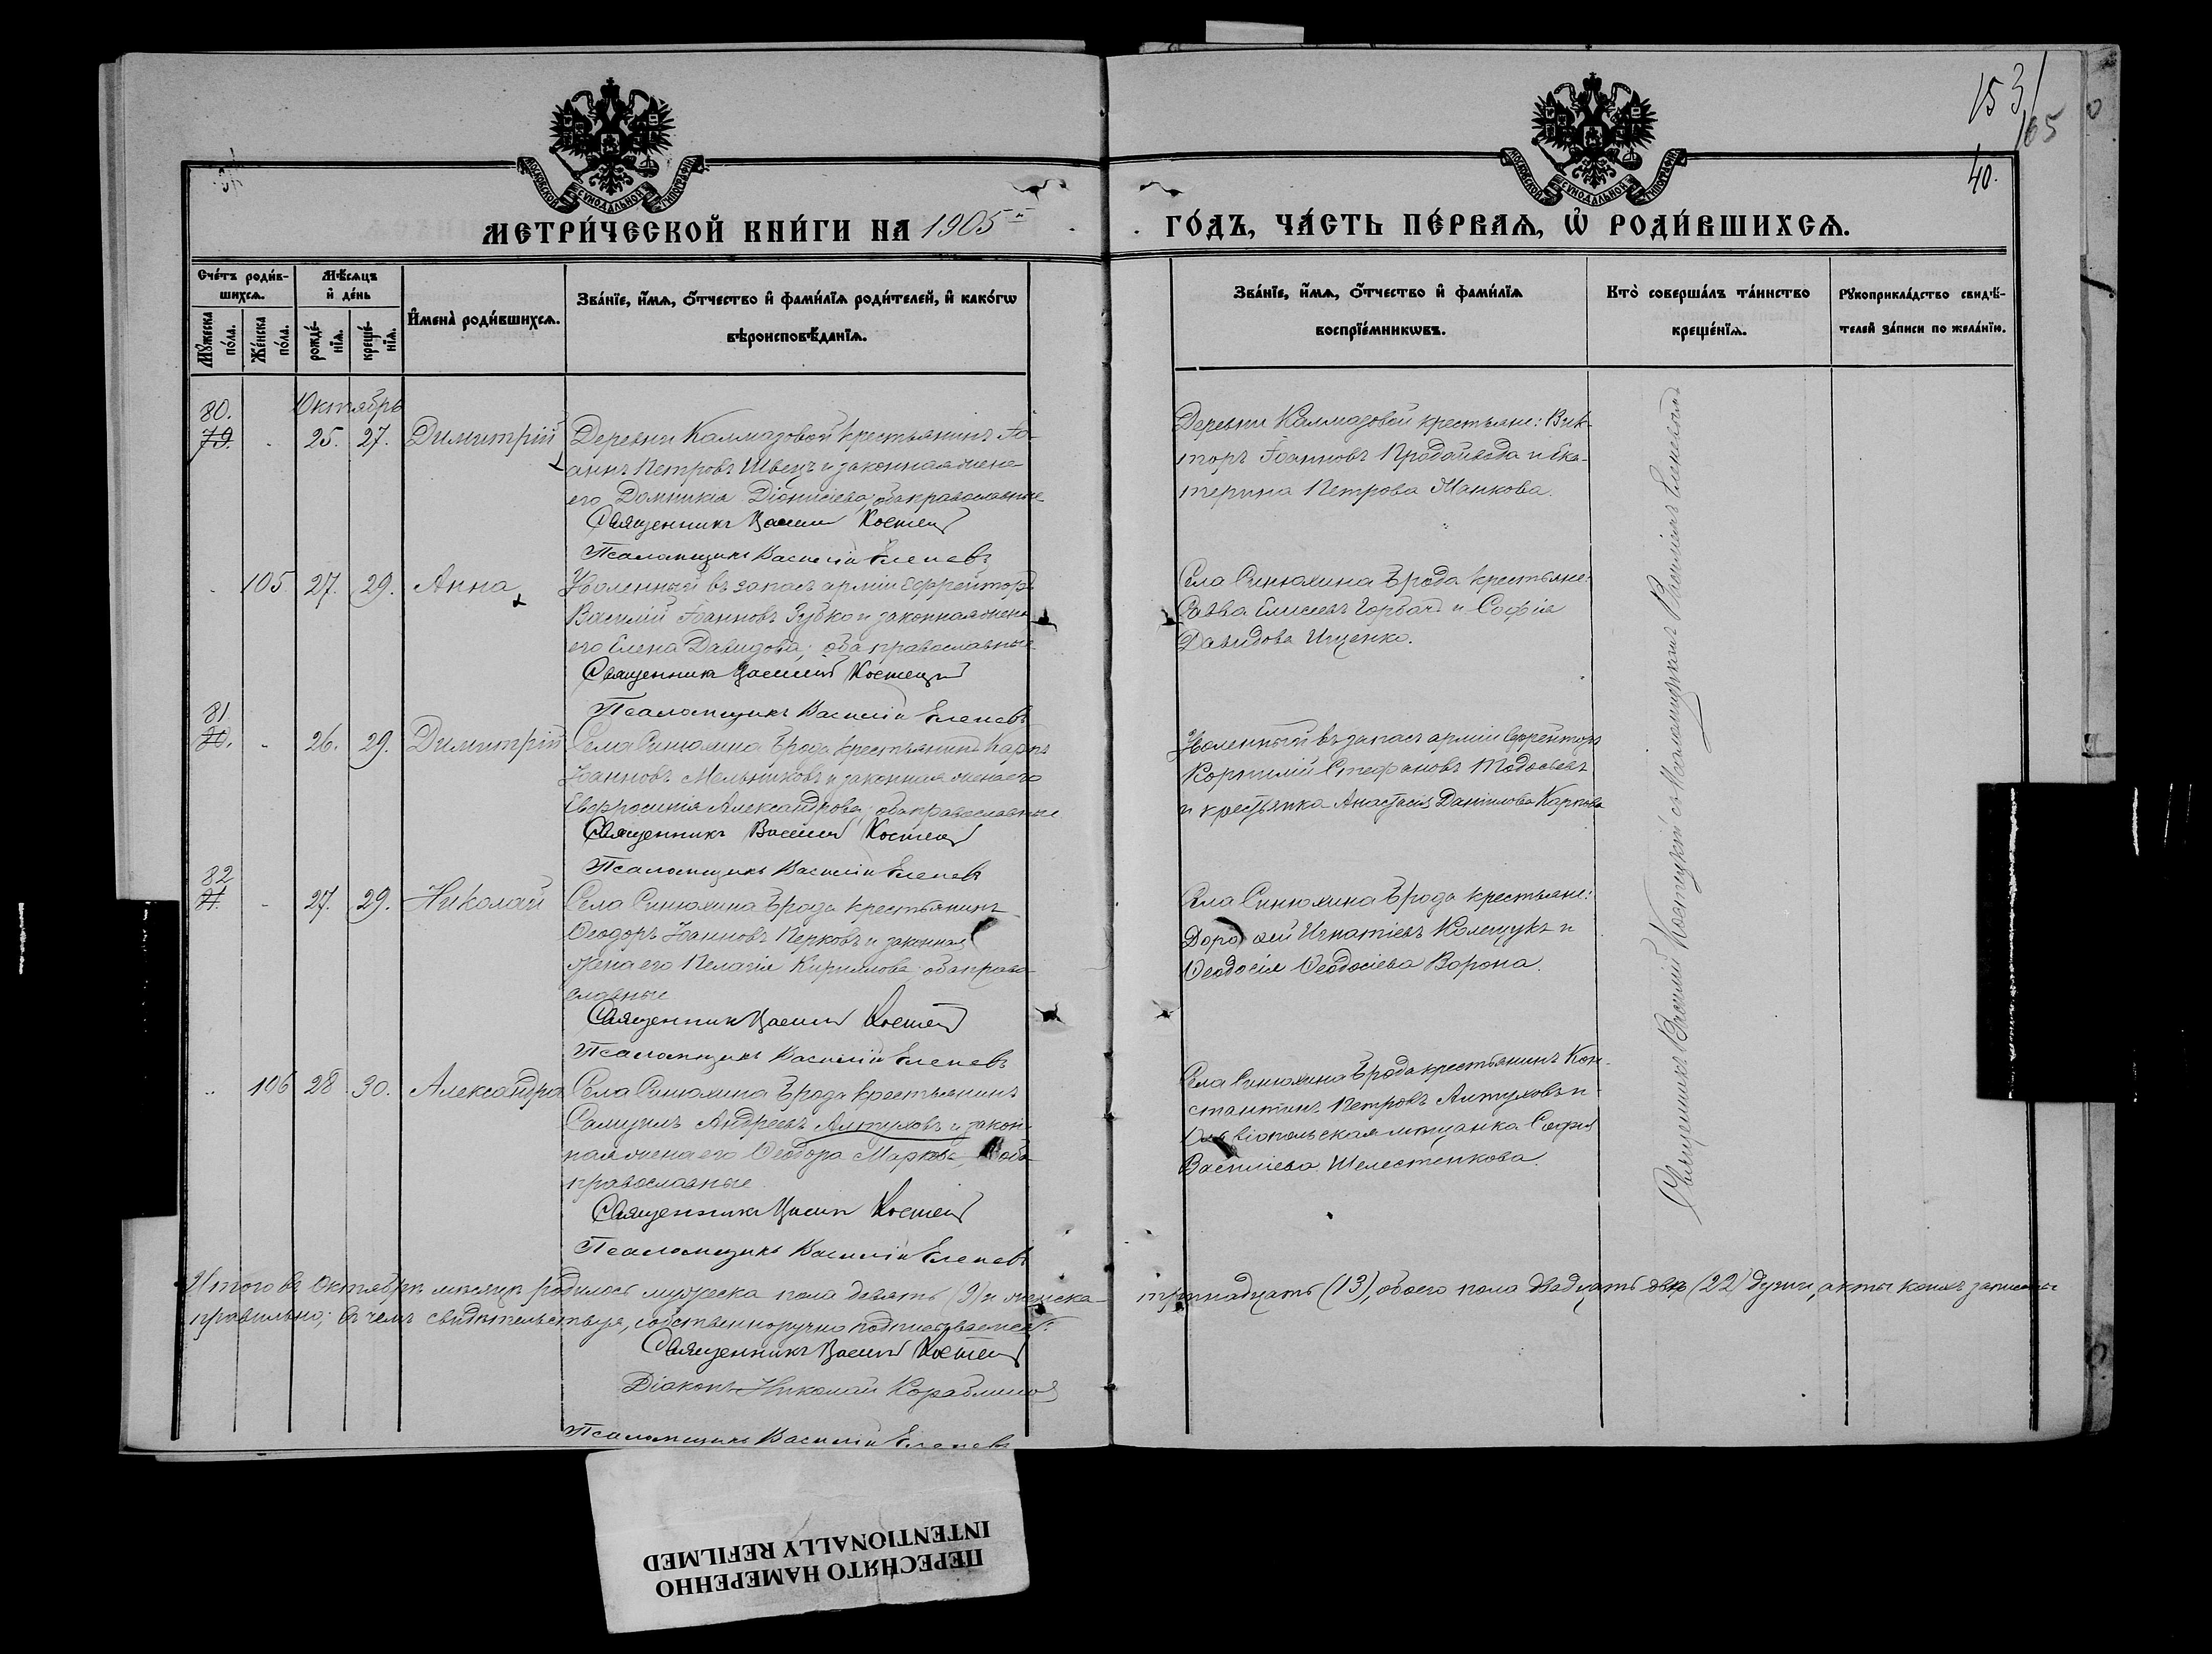 153
165
40.
МОСКОВСКОЙ СѴНОДАЛЬНОЙ ТИПОГРАФІИ
МОСКОВСКОЙ СѴНОДАЛЬНОЙ ТИПОГРАФІИ
МЕТРИ́ЧЕСКОЙ КНИ́ГИ НА 1905й
ГО́ДЪ, ЧА́СТЬ ПЕ́РВАѦ, Ѡ҆ РОДИ́ВШИХСѦ.
Сче́тъ роди́в-
шихсѧ.
Мѣ́сѧцъ
и҆ де́нь
Мꙋ́жеска
по́ла.
Же́нска
по́ла.
рожде́-
нїѧ.
креще́-
нїѧ.
И҆мена̀ роди́вшихсѧ.
Зва́нїе, и҆́мѧ, ѻ҆́тчество и҆ фами́лїѧ роди́телей, и҆ како́гѡ
вѣроисповѣ́данїѧ.
Зва́нїе, и҆́мѧ, ѻ҆́тчество и҆ фами́лїѧ
воспрїе́мникѡвъ.
Кто̀ соверша́лъ та́инство
креще́нїѧ.
Рꙋкоприкла́дство свидѣ́-
телей за́писи по жела́нїю.
Октябрь
80.
79. 25. 27. Димитрій Деревни Калмазовой крестьянинъ Іо-
аннъ Петровъ Швецъ и законная жена
его Домникія Діонисіева, оба православные
Священникъ Василій Костецкій
Псаломщикъ Василій Еленевъ
Деревни Калмазовой крестьяне: Вик-
торъ Іоанновъ и Ека-
терина Петрова Манкова.
105 27. 29. Анна Уволенный въ запасъ арміи Ефрейторъ
Василій Іоанновъ Зубко и законная жена
его Елена Давидова; оба православные
Священникъ Василій Костецкій
Псаломщикъ Василій Еленевъ
Села Синюхина Брода крестьяне:
Савва Елисеевъ Горбачъ и Софія
Давидова Ищенко.
81
80. 26. 29. Димитрій Села Синюхина Брода крестьянинъ Карпъ
Іоанновъ Мельниковъ и законная жена его
Евфросинія Александрова; оба православные
Священникъ Василій Костецкій
Псаломщикъ Василій Еленевъ
Уволенный въ запасъ арміи Ефрейторъ
Корнилій Стефановъ Тодосьевъ
и крестьянка Анастасія Даніилова Карпова
82
81. 27. 29. Николай Села Синюхина Брода крестьянинъ
Ѳеодоръ Іоанновъ Перковъ и законная
жена его Пелагія Кириллова; оба право-
славные
Священникъ Василій Костецкій
Псаломщикъ Василій Еленевъ
Села Синюхина Брода крестьяне:
Дороѳей Игнатіевъ Колещукъ и
Ѳеодосія Ѳеодосіева Ворона.
106 28 30. Александра Села Синюхина Брода крестьянинъ
Самуилъ Андреевъ Алтуховъ и закон-
ная жена его Ѳеодора Маркова, оба
православные
Священникъ Василій Костецкій
Псаломщикъ Василій Еленевъ
Села Синюхина Брода крестьянинъ Кон-
стантинъ Петровъ Алтуховъ и
Ольвіопольская мѣщанка Софія
Василіева Шелестенкова.
Священникъ Василій Костецкій съ Псаломщикомъ Василіемъ Еленевымъ
Итого въ Октябрѣ мѣсяцѣ родилось мужеска пола девять (9) и женска тринадцать (13), обоего пола двадцать двѣ (22) души, акты коихъ записаны
правильно; въ чемъ свидѣтельствуя, собственноручно подписываемся:
Священникъ Василій Костецкій
Діаконъ Николай Кораблиновъ
Псаломщикъ Василій Еленевъ
ПЕРЕСНЯТО НАМЕРЕННО
INTENTIONALLY REFILMED